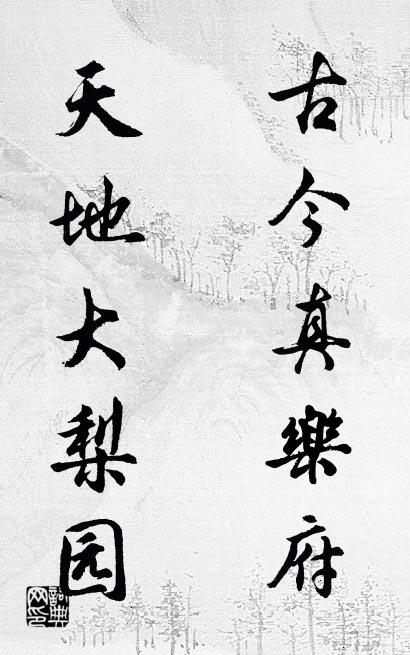 古今真樂府
天地大梨园